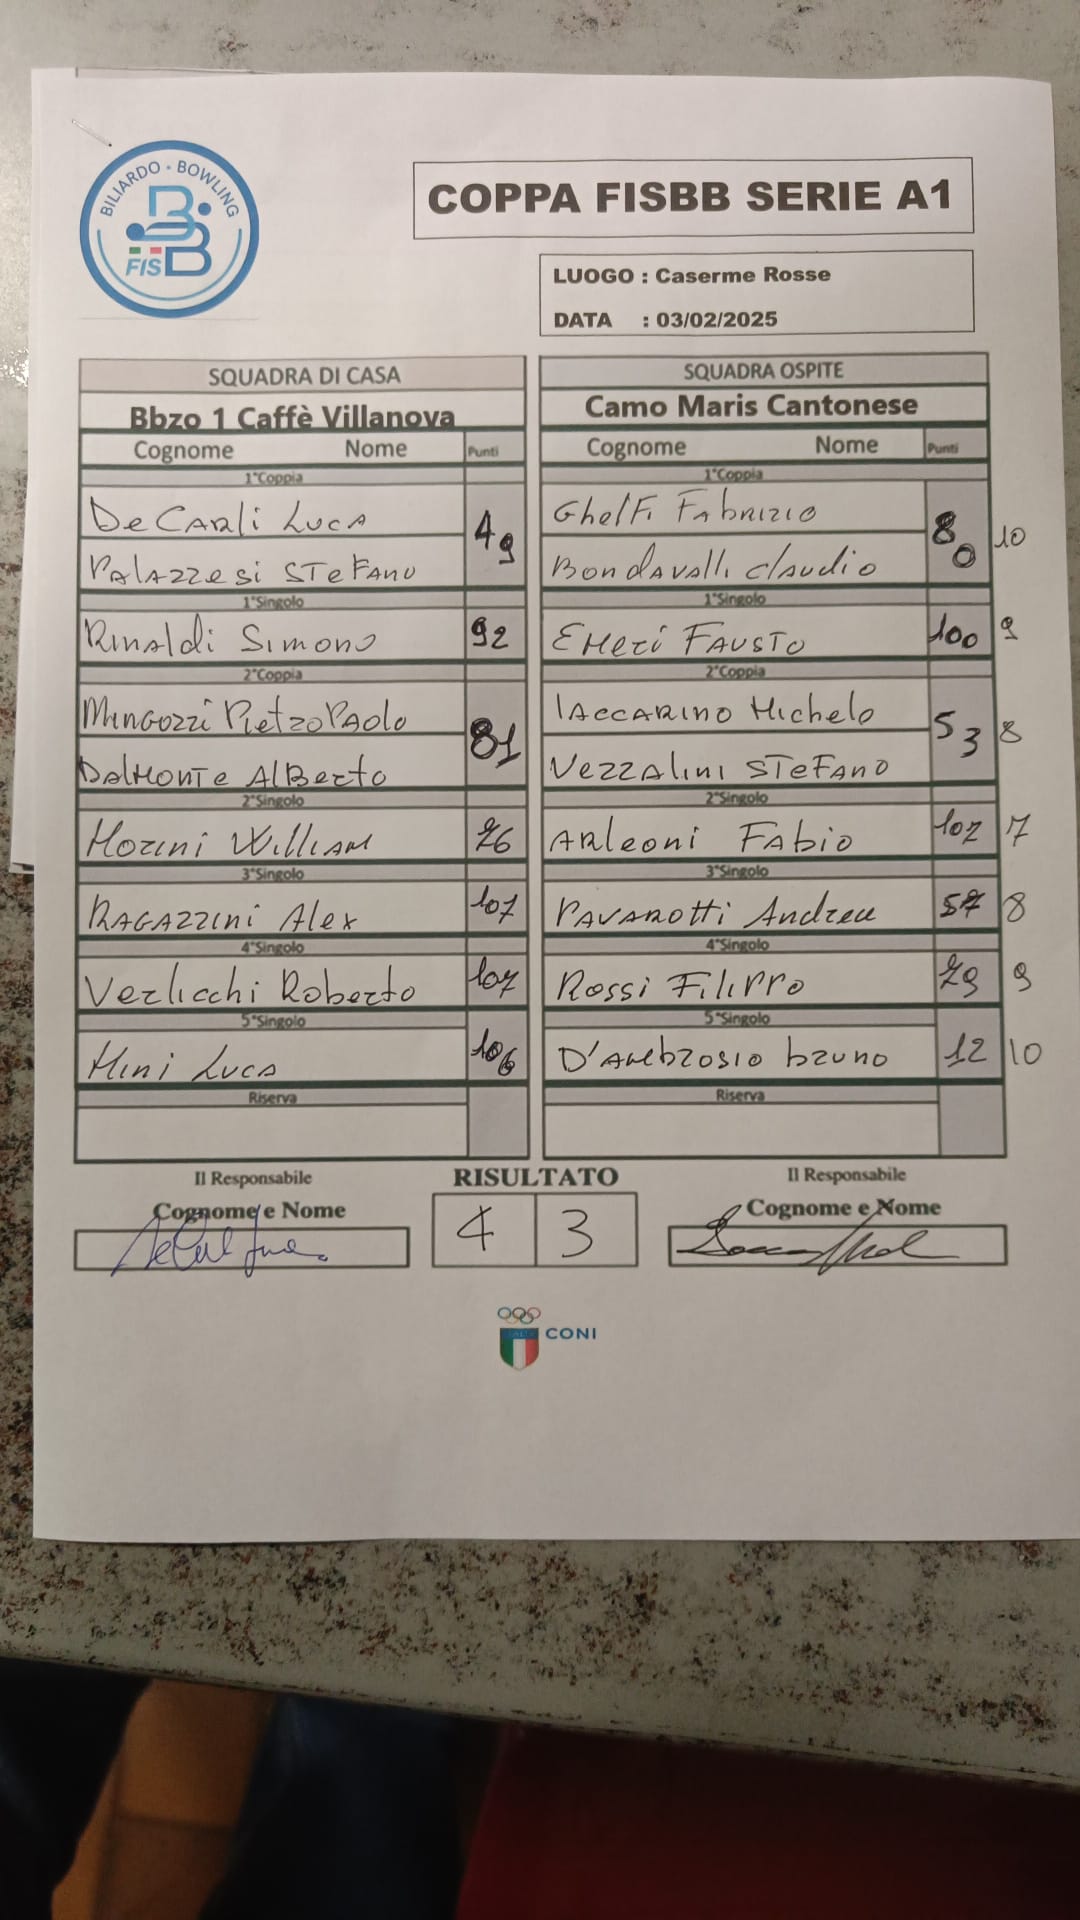 BILIARDO • BOWLING
FISBB
COPPA FISBB SERIE A1
LUOGO : Caserme Rosse
DATA : 03/02/2025
SQUADRA DI CASA
SQUADRA OSPITE
Bbzo 1 Caffè Villanova
Camo Maris Cantonese
Cognome Nome Punti
Cognome Nome Punti
1°Coppia
1°Coppia
De Carli Luca
Palazzesi Stefano
49
Ghelfi Fabrizio
Bondavalli Claudio
80 10
1°Singolo
1°Singolo
Rinaldi Simono 92
Emeri Fausto 100 9
2°Coppia
2°Coppia
Mingozzi PietroPaolo
Dalmonte Alberto
81
Iaccarino Michele
Vezzalini Stefano
53 8
2°Singolo
2°Singolo
Morini William 76
Arleoni Fabio 107 7
3°Singolo
3°Singolo
Ragazzini Alex 107
Pavarotti Andrea 57 8
4°Singolo
4°Singolo
Verlicchi Roberto 107
Rossi Filippo 79 9
5°Singolo
5°Singolo
Mini Luca 106
D'Ambrosio Bruno 12 10
Riserva
Riserva
Il Responsabile
RISULTATO
Il Responsabile
Cognome e Nome
4 3
Cognome e Nome
ITALIA
CONI